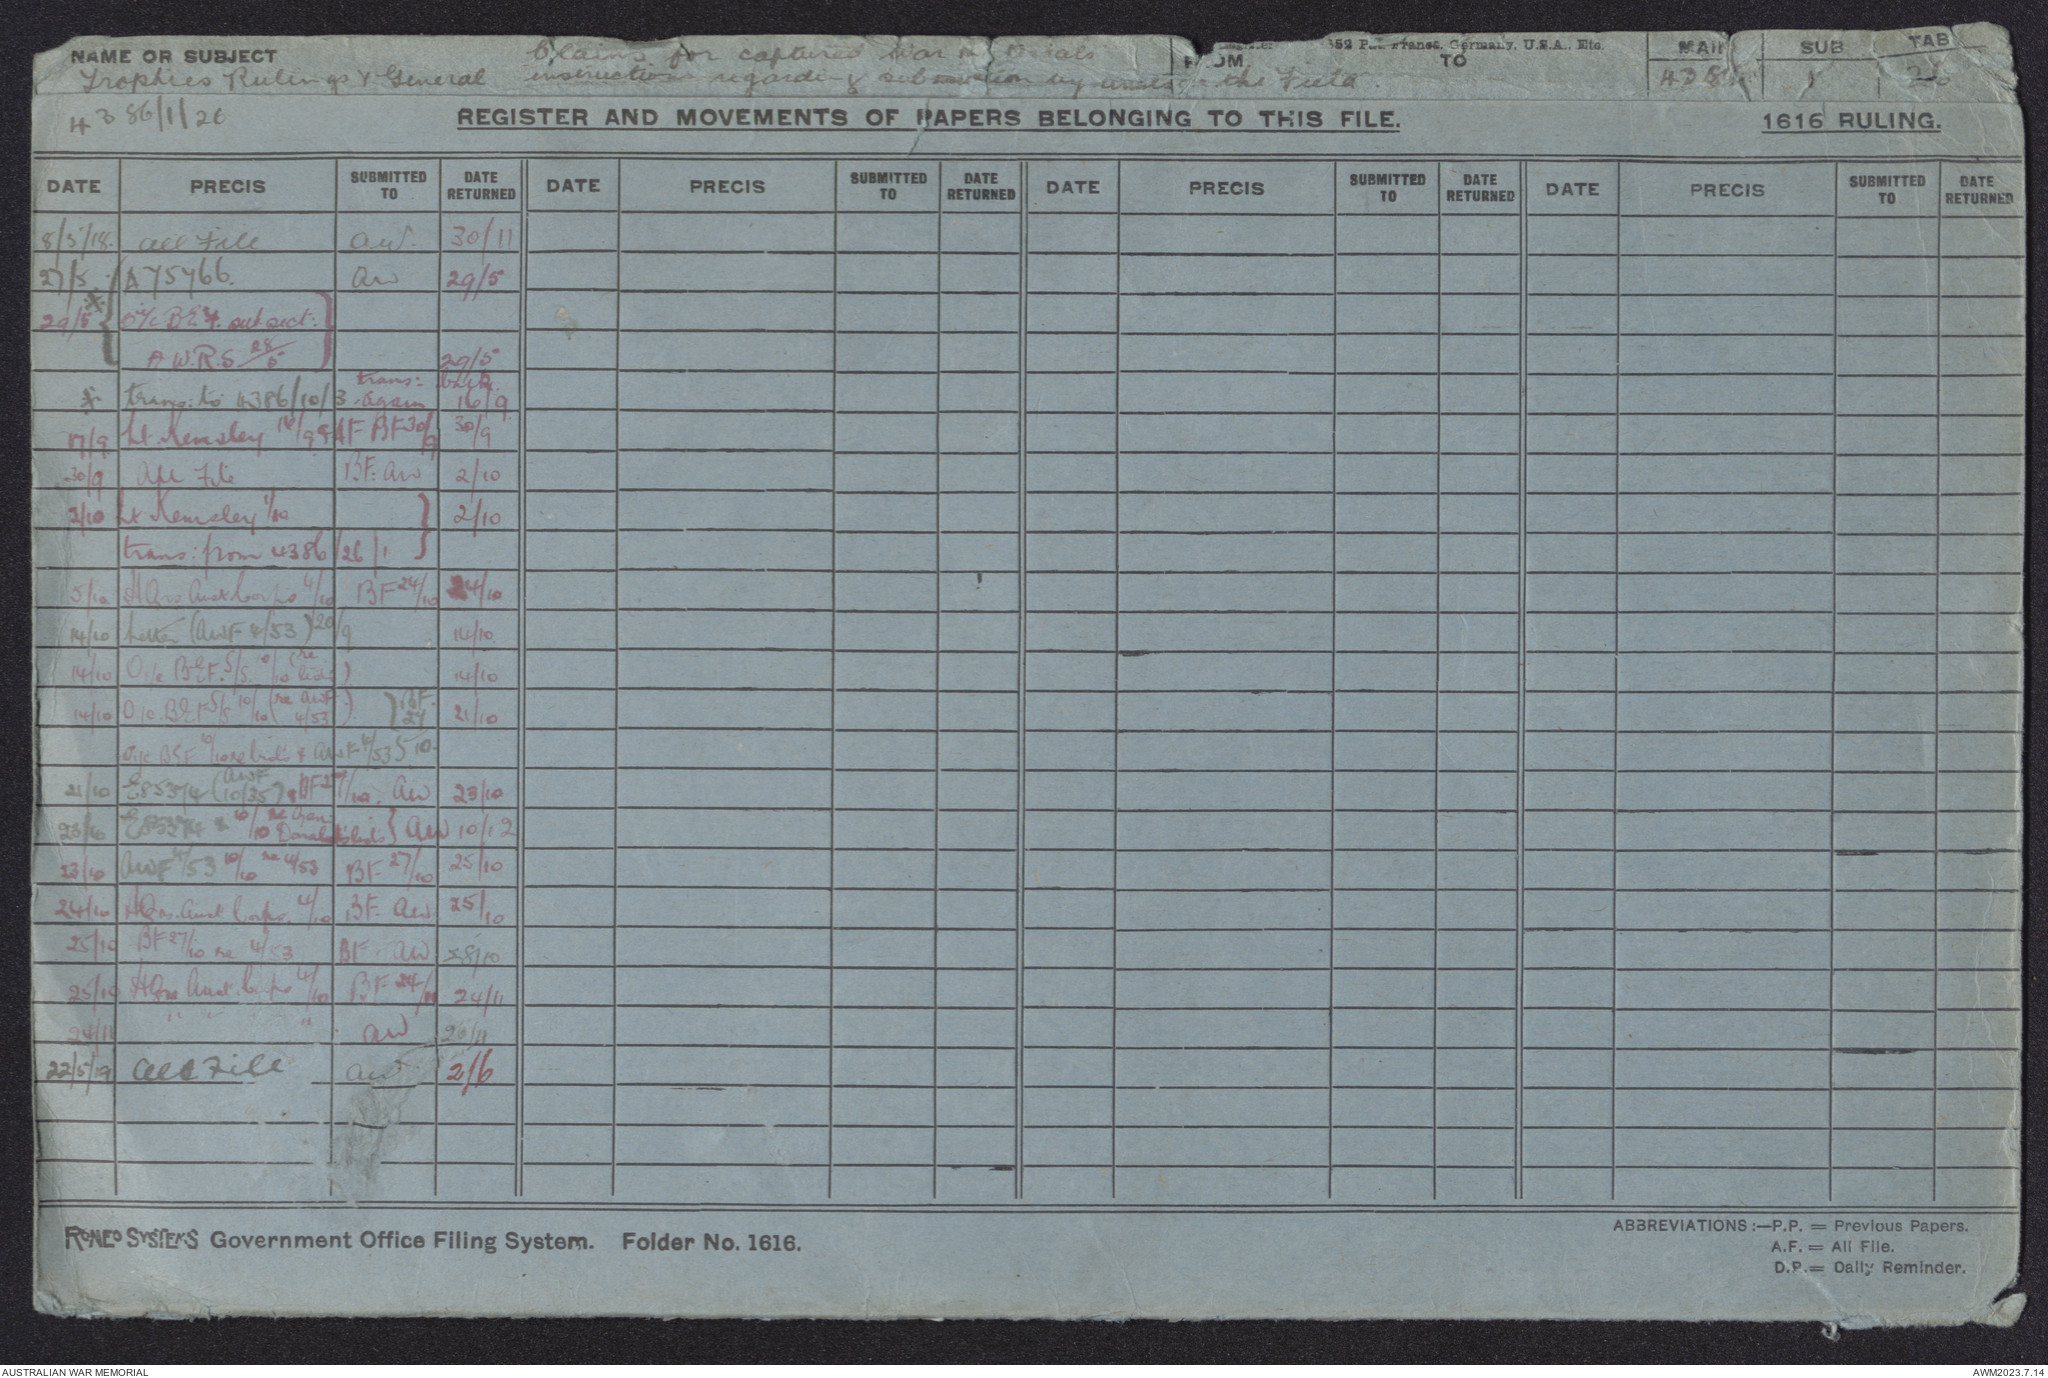 NAME OR SUBJECT Claims for captured War
FROM TO
MAIN SUB TAB
Trophies Rulings & General instructions regarding submission by units in the Field.
4386 1 26
4386/1/26
REGISTER AND MOVEMENTS OF PAPERS BELONGING TO THIS FILE.
1616 RULING.
DATE PRECIS SUBMITTED TO DATE RETURNED DATE PRECIS SUBMITTED TO DATE RETURNED DATE PRECIS SUBMITTED TO DATE RETURNED DATE PRECIS SUBMITTED TO DATE RETURNED
8/5/18. All File AW. 30/11
27/5 A75766. AW 29/5
29/5 O/c B.E.F. sub sect:
A.W.R.S 28/5 29/5
* trans: to 4386/10/3 trans: again back 16/9
17/9 Lt. Kemsley 16/9 & AF BF 30/9 30/9
30/9 All File BF. AW 2/10
2/10 Lt Kemsley 1/10 2/10
trans: from 4386/26/1
5/10 HQrs Aust Corps 4/10 BF 24/10 24/10
14/10 Letter (AWF 4/53) 20/9 14/10
14/10 O/c BEF. S/S. 10/10 (re lids) 14/10
14/10 O/c. BEF S/S 10/10 (re AWF 4/53) BF. 27 21/10
O/c BEF 10/10 re lids & AWF 4/53 10.
21/10 E8537/4 (AWF 10/35) & BF 27/10. AW 23/10
23/10 E8537/4 & 10/10 re AW 10/12
23/10 AWF 4/53 10/10 re 4/53 BF 27/10 25/10
24/10 HQrs. Aust Corps. 4/10 BF. AW. 25/10
25/10 BF 27/10 re 4/53 BF. AW 28/10
25/10 HQrs Aust. Corps 4/10 BF 24/11 24/11
24/11 " " " " AW 26/11
22/5/19 All File AW 2/6
RONEO SYSTEMS Government Office Filing System. Folder No. 1616.
ABBREVIATIONS:—P.P. = Previous Papers.
A.F. = All File.
D.R. = Daily Reminder.
AUSTRALIAN WAR MEMORIAL
AWM2023.7.14